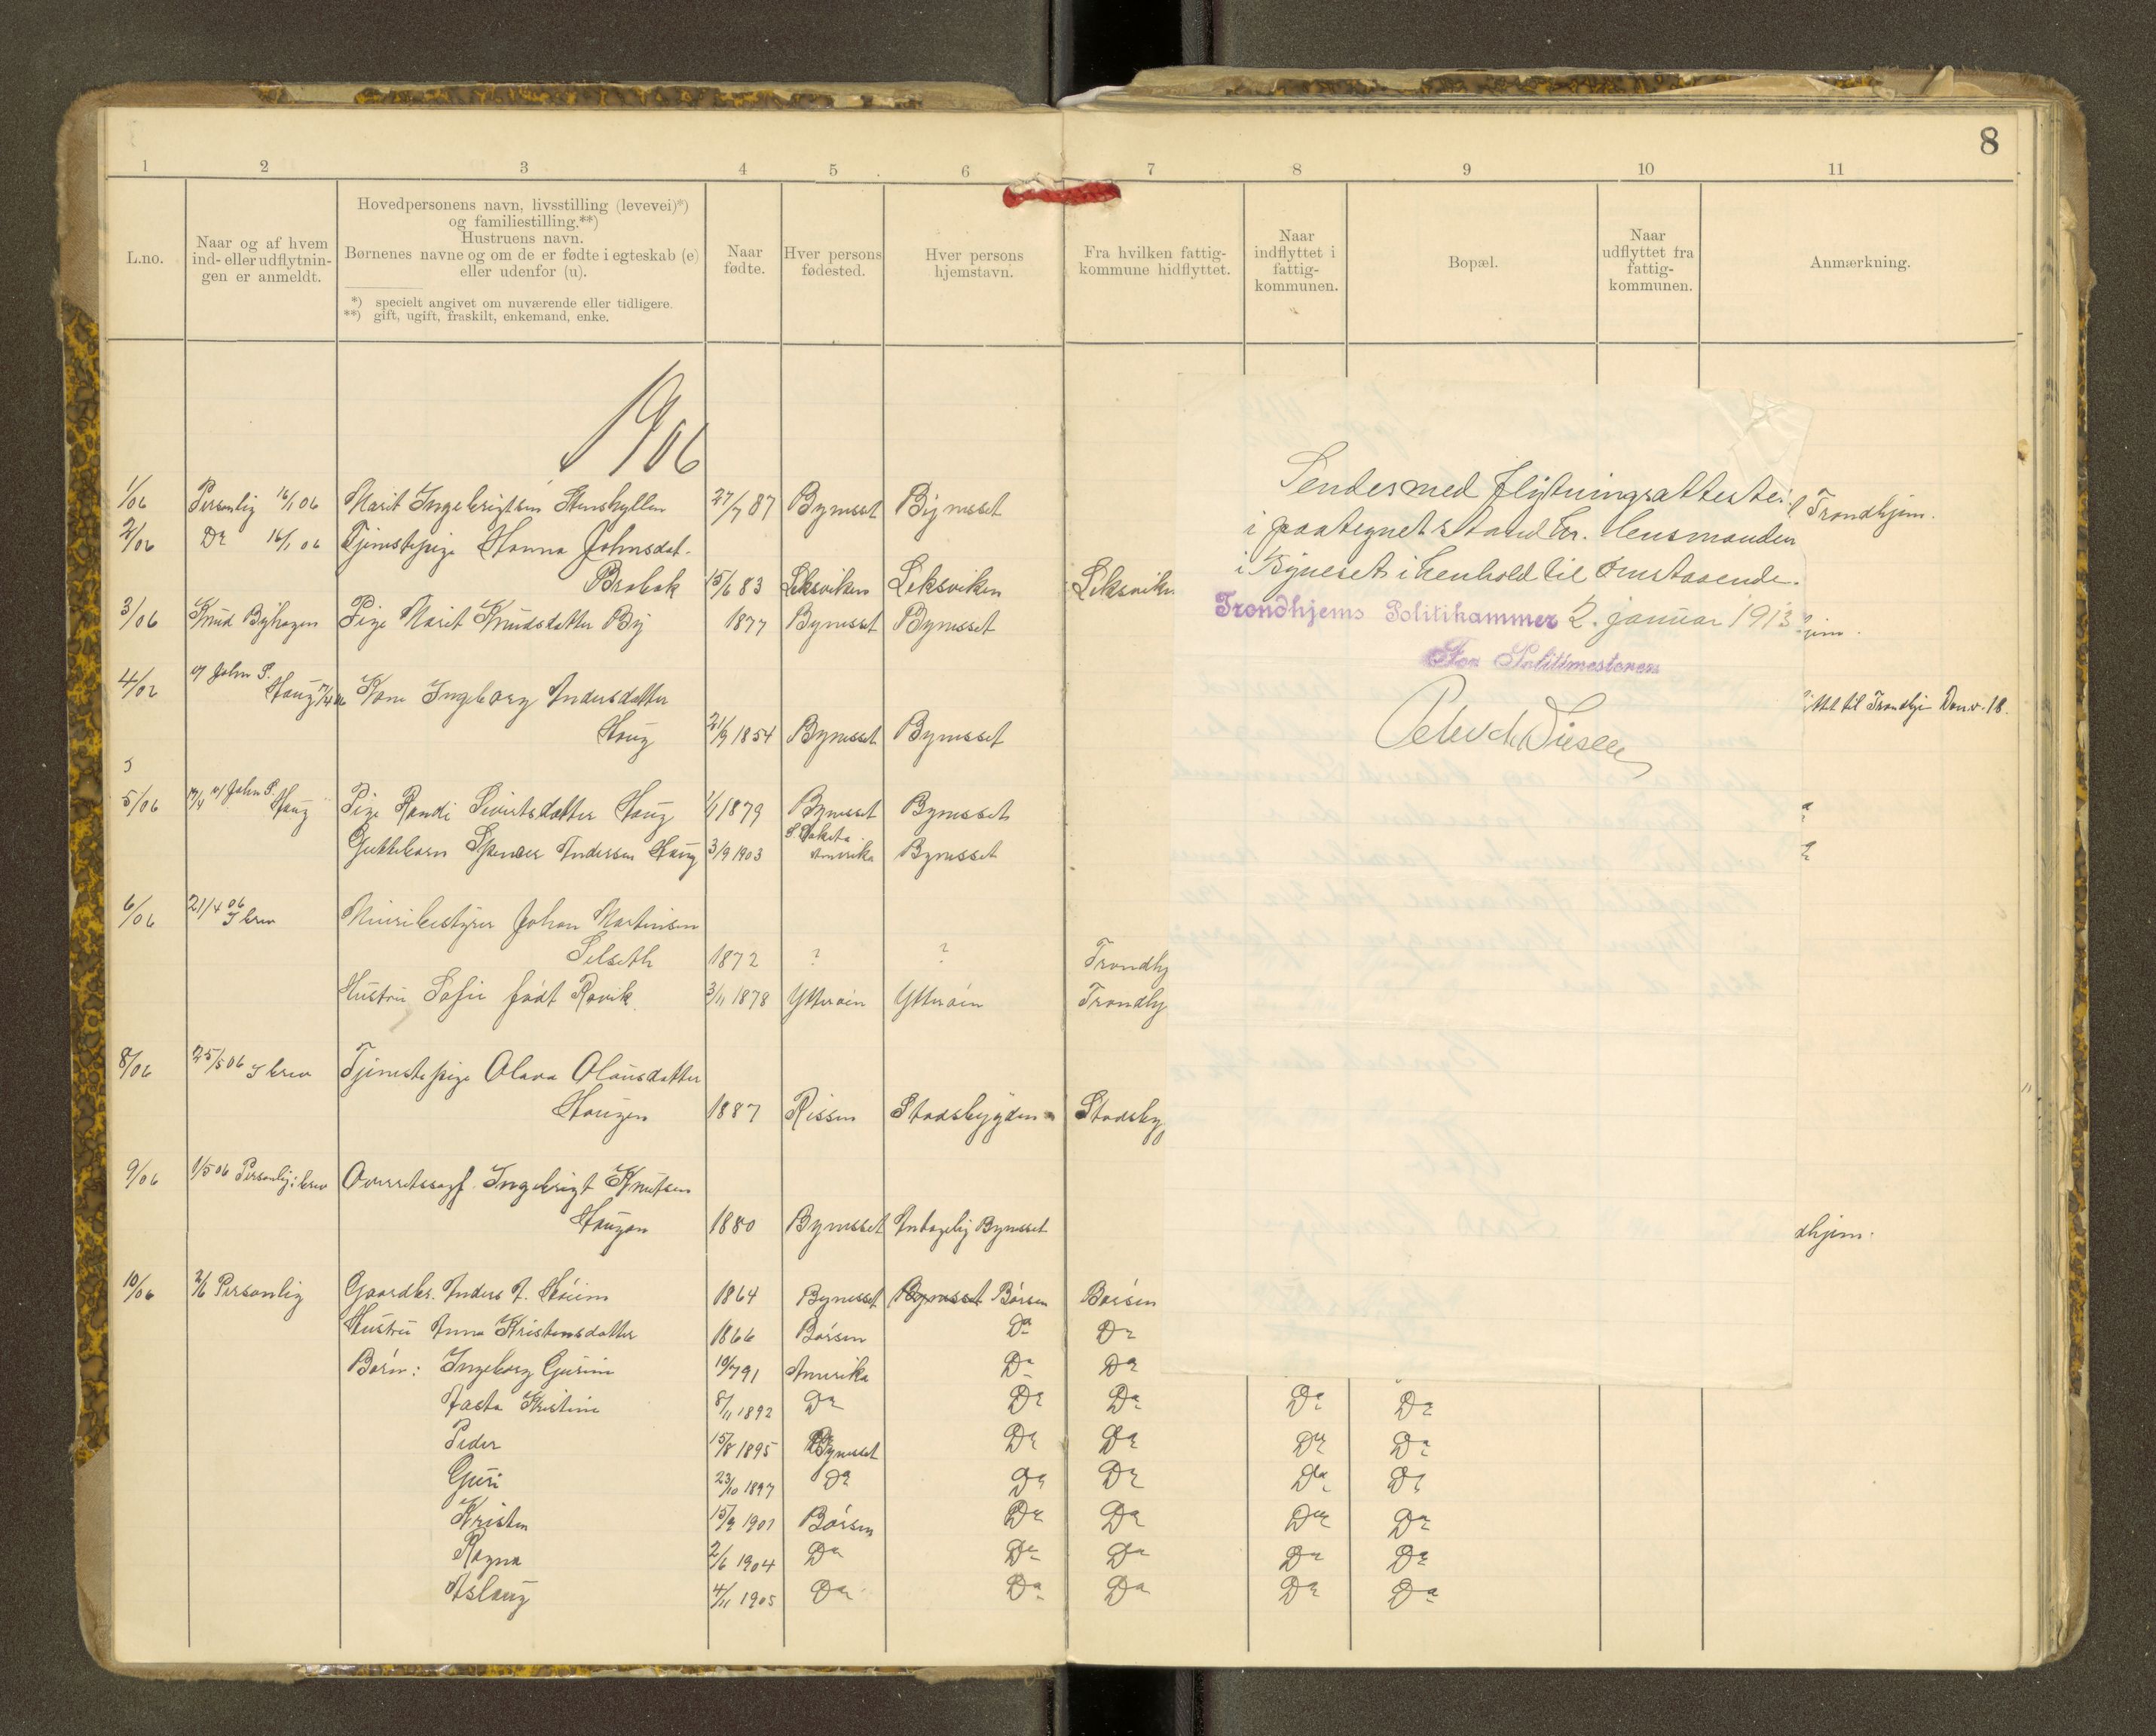 8
1 2 3 4 5 6 7 8 9 10 11
L.no.
Naar og af hvem
ind- eller udflytnin-
gen er anmeldt.
Hovedpersonens navn, livsstilling (levevei)*)
og familiestilling.**)
Hustruens navn.
Børnenes navne og om de er fødte i egteskab (e)
eller udenfor (u).
*) specielt angivet om nuværende eller tidligere.
**) gift, ugift, fraskilt, enkemand, enke.
Naar
fødte.
Hver persons
fødested.
Hver persons
hjemstavn.
Fra hvilken fattig-
kommune hidflyttet.
Naar
indflyttet i
fattig-
kommunen.
Bopæl.
Naar
udflyttet fra
fattig-
kommunen.
Anmærkning.
1906
1/06 Personlig 16/1 06 Marit Ingebrigtsen 27/7 87 Bynesset Bynesset Trondhjem.
2/06 Do 16/1 06 Tjenestepige Hanna Johnsdat.
Brabak 15/6 83 Leksviken Leksviken Leksvike
3/06 Knud Byhagen Pige Marit Knudsdatter By 1877 Bynesset Bynesset jem.
4/06 af John S.
Haug 17/4 06 Kone Ingeborg Andersdatter
Haug 21/9 1854 Bynesset Bynesset ittet til Trondhj
5
5/06 17/4 af John S.
Haug Pige Randi Sivertsdatter Haug 1/1 1879 Bynesset Bynesset
Guttebarn Spencer Andersen Haug 3/9 1903 S. Dakota
Amerika Bynesset
6/06 21/4 06
I brev Meieribestyrer Johan Martinsen
Selseth 1872 ? ? Trondhj
Hustru Sofie født Ravik 3/11 1878 Ytterøen Ytterøen Trondhj
8/06 25/5 06 I brev Tjenestepige Olava Olausdatter
Haugen 1887 Rissen Stadsbygden Stadsby
9/06 1/5 06 Personlig i brev Overretssagf. Ingebrigt Knutsen
Haugan 1880 Bynesset Antagelig Bynesset dhjem.
10/06 2/6 Personlig Gaardbr. Anders A. Høiem 1864 Bynesset Bynesset Børsen Børsen
Hustru Anna Kristensdatter 1866 Børsen Do Do
Børn: Ingeborg Gurine 10/7 91 Amerika Do Do
Jasta Kristine 8/11 1892 Do Do Do Do Do
Peder 15/8 1895 Bynesset Do Do Do Do
Guri 23/10 1897 Do Do Do Do Do
Kristen 15/9 1901 Børsen Do Do Do Do
Ragna 2/6 1904 Do Do Do Do Do
Aslaug 4/11 1905 Do Do Do Do Do
Sendes med flytningsatteste
i paategnet stand hr. lensmanden
i Byneset i henhold til omstaaende.
Trondhjems Politikammer 2. januar 1913
For Politimesteren